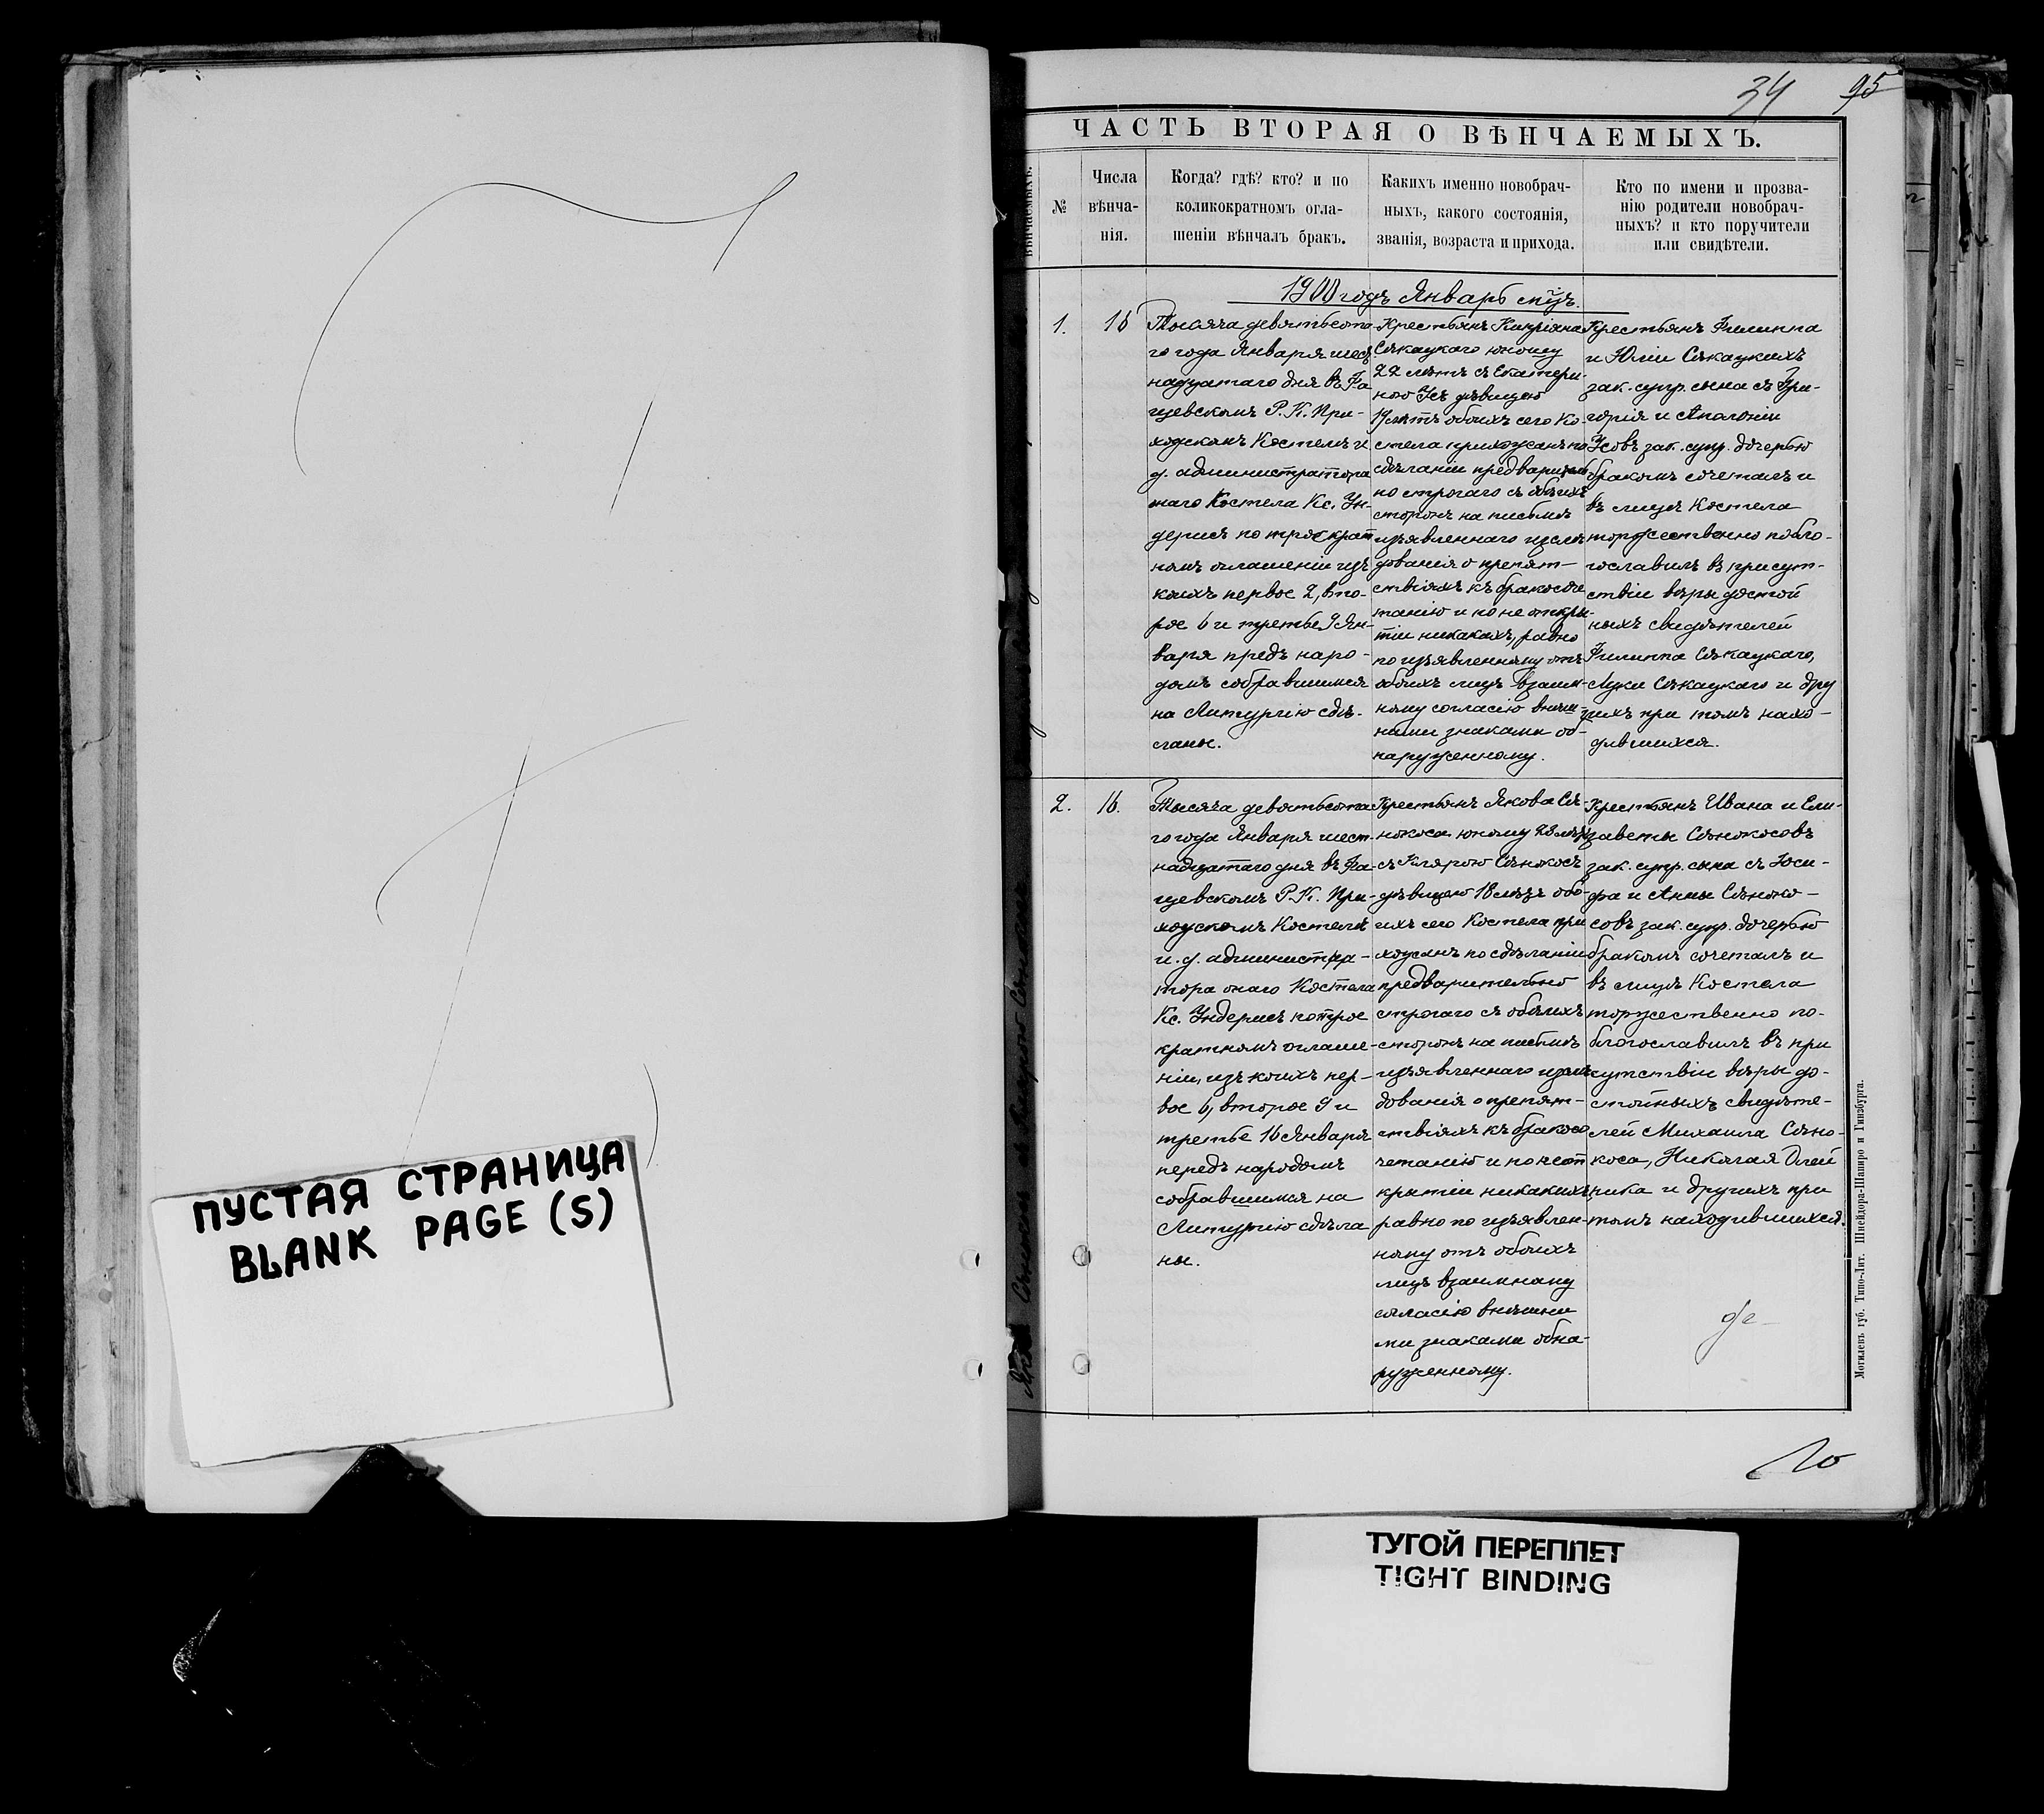 ПУСТАЯ СТРАНИЦА
BLANK PAGE (S)
34 95
ЧАСТЬ ВТОРАЯ О ВѢНЧАЕМЫХЪ.
№
вѣнчаемыхъ.
Числа
вѣнча-
нія.
Когда? гдѣ? кто? и по
коликократномъ огла-
шеніи вѣнчалъ бракъ.
Какихъ именно новобрач-
ныхъ, какого состоянія,
званія, возраста и прихода.
Кто по имени и прозва-
нію родители новобрач-
ныхъ? и кто поручители
или свидѣтели.
1900 годъ Январь мѣц.
1.
16
Тысяча девятьсота
го года Января шест
надцатаго дня въ Фа
щевскомъ Р. К. При-
ходскомъ Костелѣ и
д. администратора
онаго Костела Кс. Ун-
дерисъ по троекрат
номъ оглашеніи изъ
коихъ первое 2, вто-
рое 6 и третье 9 Ян-
варя предъ наро-
домъ собравшимся
на Литургію сдѣ-
ланы.
Крестьянъ Кипріана
Сѣкацкаго юношу
22 лѣтъ съ Екатери-
ною Усъ дѣвицею
19 лѣтъ обоихъ сего Ко-
стела прихожанъ по
сдѣланіи предваритель
но строгаго съ обѣихъ
сторонъ на письмѣ
изъявленнаго изслѣ
дованія о препят-
ствіяхъ къ бракосоче
танію и по не откры-
тіи никакихъ, равно
по изъявленному отъ
обоихъ лицъ взаим-
ному согласію внѣш-
ними знаками об-
наруженному.
Крестьянъ Филиппа
и Юліи Сѣкацкихъ
зак. супр. сына съ Гри-
горія и Апалоніи
Усовъ зак. супр. дочерью
бракомъ сочеталъ и
въ лицѣ Костела
торжественно побло-
гославилъ въ присут-
ствіи вѣры достой
ныхъ свидѣтелей
Филиппа Сѣкацкаго,
Луки Сѣкацкаго и дру
гихъ при томъ нахо-
дившихся.
2.
16.
Тысяча девятьсота
го года Января шест
надцатаго дня въ Фа-
щевскомъ Р. К. При-
ходскомъ Костелѣ
и. д. администра-
тора онаго Костела
Кс. Ундерисъ по трое
кратномъ оглаше-
ніи, изъ коихъ пер-
вое 6, второе 9 и
третье 16 Января
передъ народомъ
собравшимся на
Литургію сдѣла
ны.
Крестьянъ Якова Сѣ-
нокоса юношу 23 лѣтъ
съ Клярою Сѣнокосъ
дѣвицею 18 лѣтъ обо-
ихъ сего Костела при
хожанъ по сдѣланіи
предварительно
строгаго съ обѣихъ
сторонъ на письмѣ
изъявленнаго изслѣ
дованія о препят-
ствіяхъ къ бракосо
четанію и по не от
крытіи никакихъ,
равно по изъявлен-
ному отъ обоихъ
лицъ взаимному
согласію внѣшни
ми знаками обна-
руженному.
Крестьянъ Ивана и Ели-
заветы Сѣнокосовъ
зак. супр. сына съ Іоси-
фа и Анны Сѣноко-
совъ зак. супр. дочерью
бракомъ сочеталъ и
въ лицѣ Костела
торжественно по-
благославилъ въ при
сутствіи вѣры до-
стойныхъ свидѣте-
лей Михаила Сѣно-
коса, Николая Олей
ника и другихъ при
томъ находившихся.
Могилевъ губ. Типо-Лит. Шнейдора-Шапиро и Гинзбурга.
ТУГОЙ ПЕРЕПЛЕТ
TIGHT BINDING